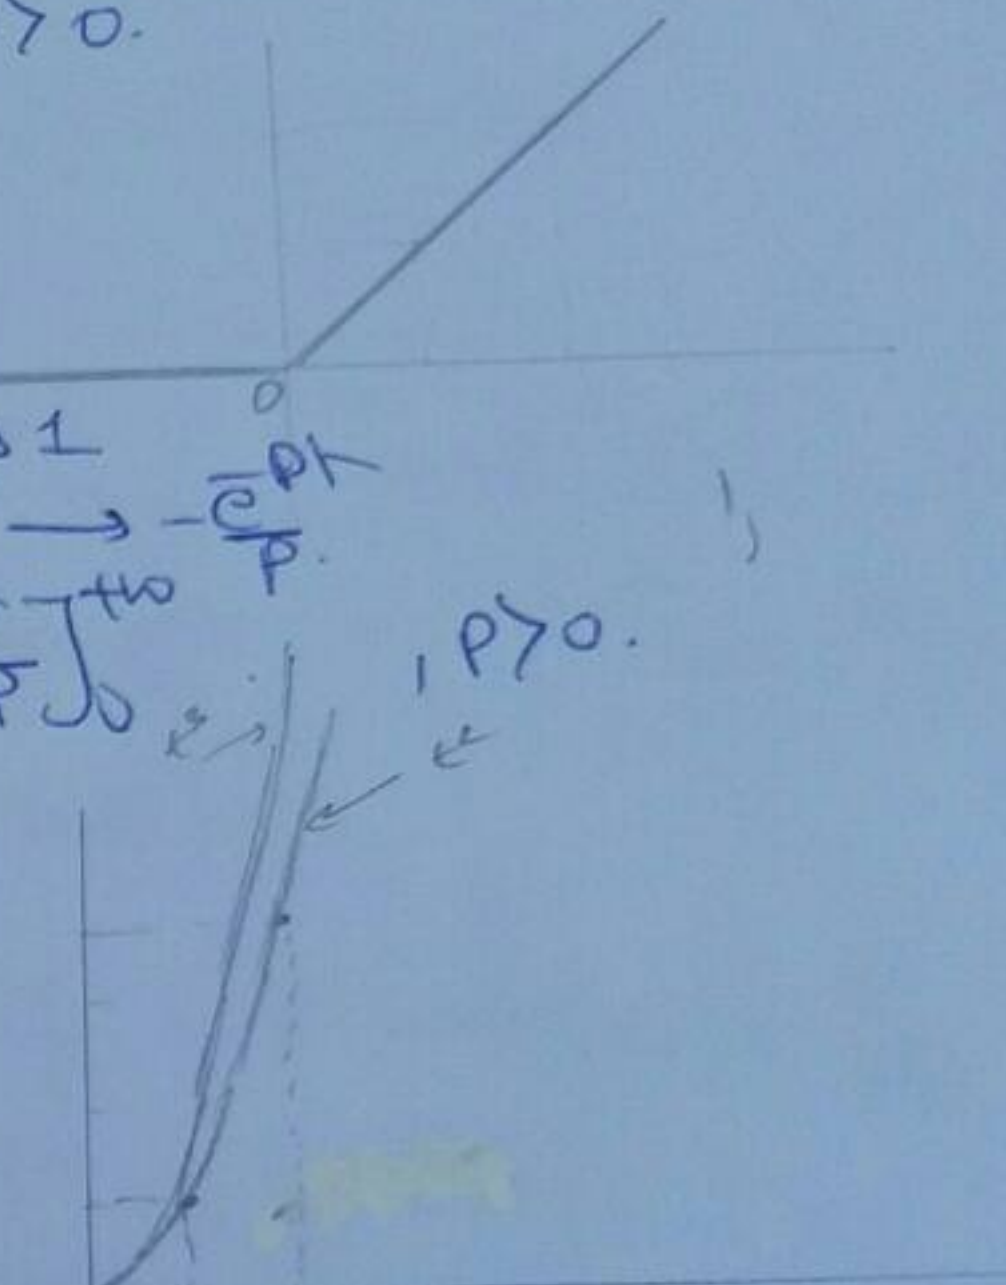 > 0.
0
1
→ -e^{-pt}/p.
]_0^{+∞} , P>0.
t²